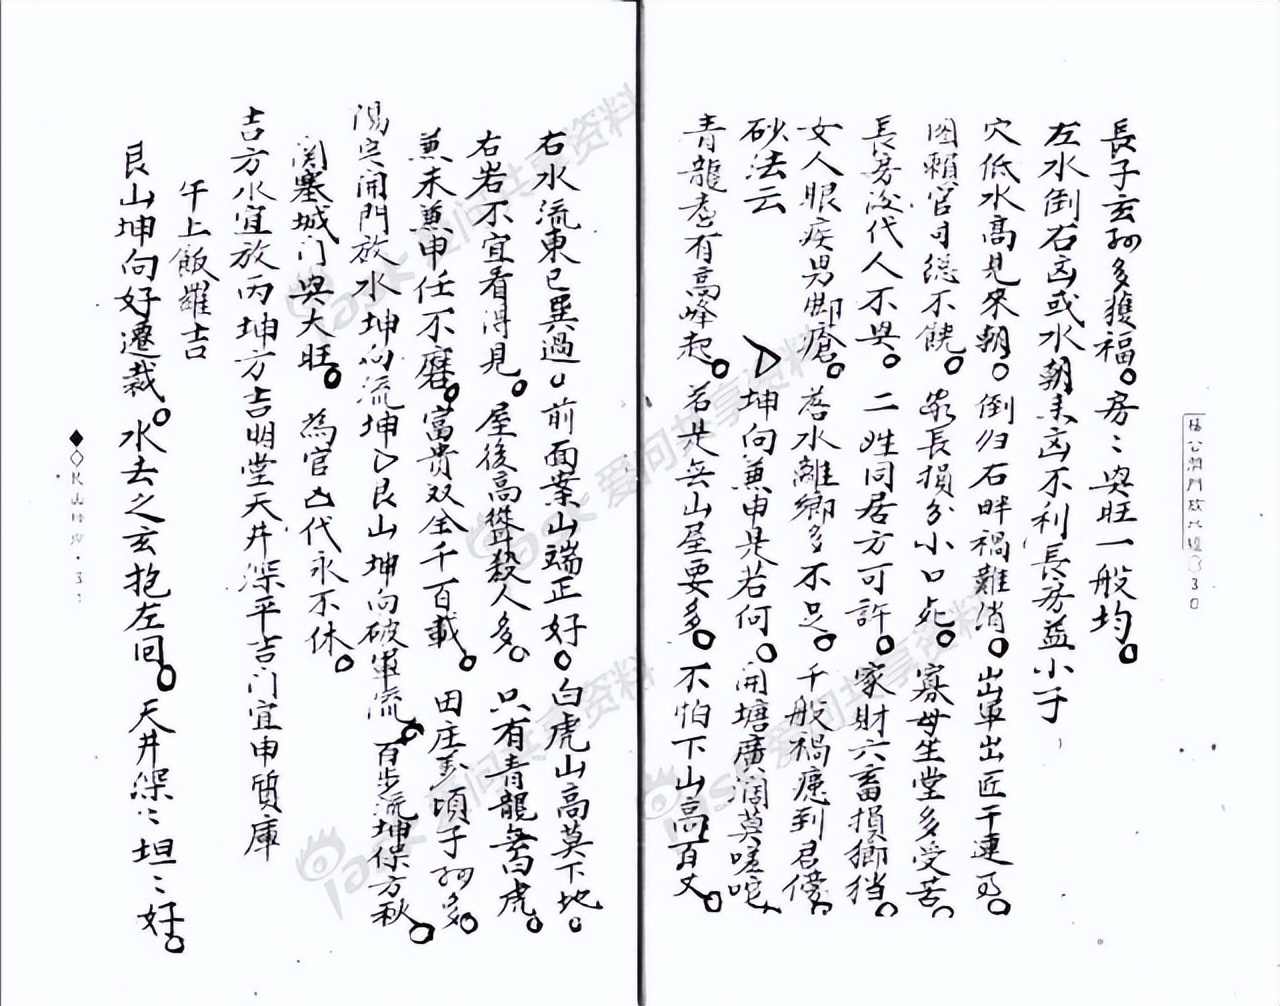 長子玄孙多獲福。房〻興旺一般均。
左水倒右凶或水朝未凶不利長房益小子
穴低水高見來朝。倒归右畔禍難消。出軍出匠干連至。
圖賴官司總不饒。家長損分小口死。寡母生堂多受苦。
長房後代人不興。二姓同居方可許。家財六畜損
女人眼疾男脚瘡。落水離鄉多不足。千般禍到君
砂法云
坤向兼申是若何。開塘廣濶莫嗟咜
青龍若有高峰起。若是去山屋要多。不怕下山高百丈。
30
右水流東巳巽過。前面案山端正好。白虎山高莫下地。
右岩不宜看得見。屋後高聳殺人多。只有青龍無白虎。
兼未兼申任不磨。富貴双全千百載。田庄萬頃子孙多。
陽宅開門放水坤向流坤 艮山坤向破軍流。百步流坤保方秋。
関塞城门興大旺。為官 代永不休。
吉方水宜放丙坤方吉明堂天井深平吉门宜申質庫
午上飯羅吉
艮山坤向好遷裁。水去之玄抱左回。天井深〻坦〻好。
31
ask 爱问共享资料
ask 爱问共享资料
ask 爱问共享资料
ask 爱问共享资料